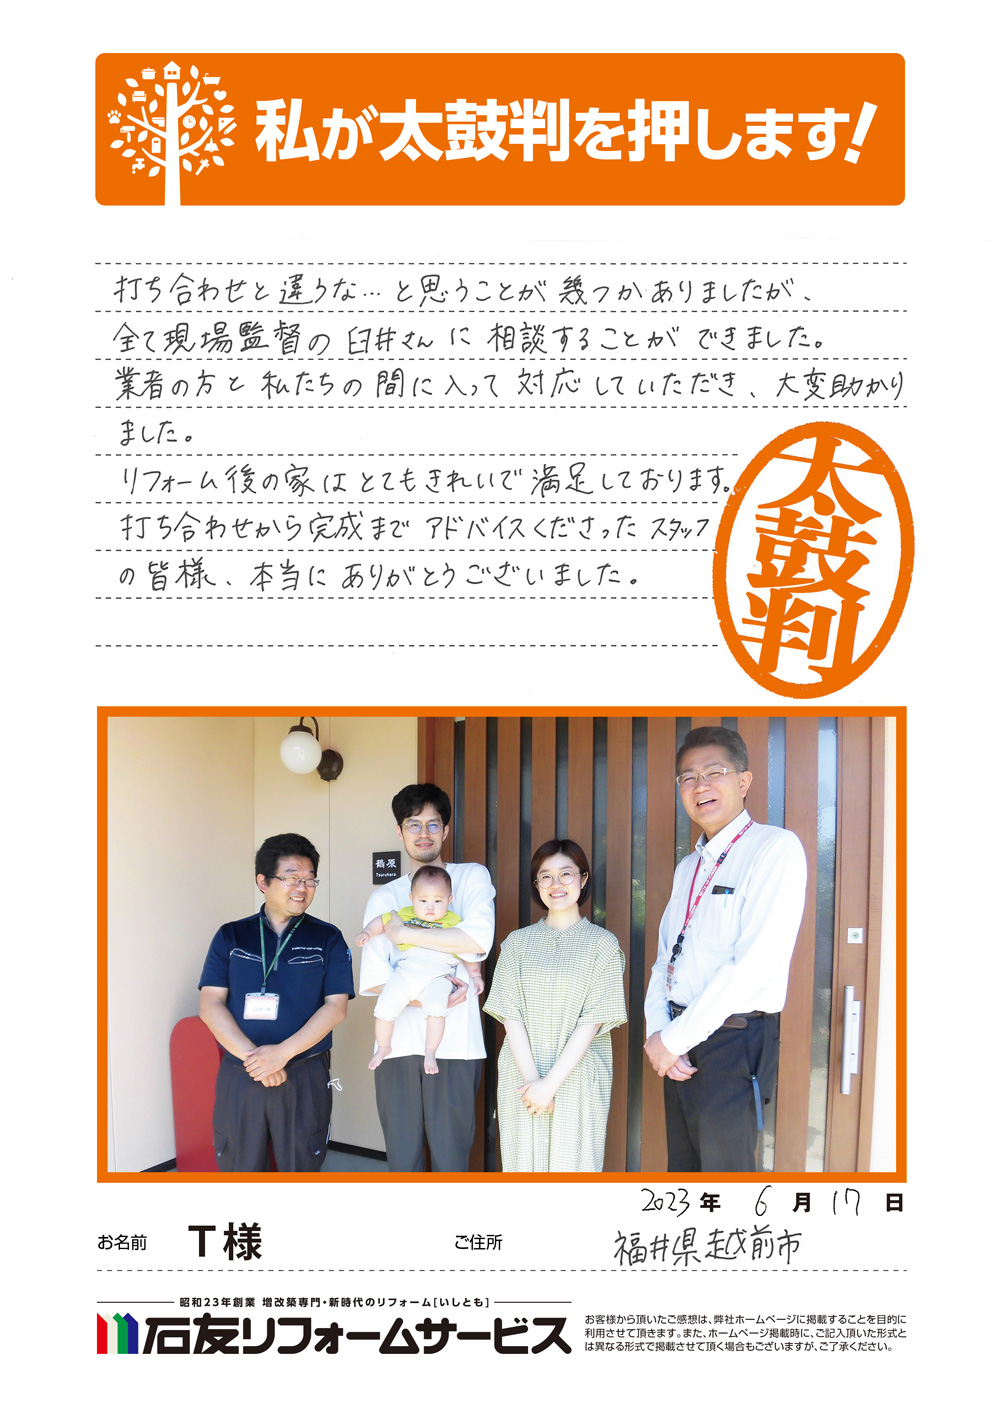 私が太鼓判を押します!
打ち合わせと違うな…と思うことが幾つかありましたが、
全て現場監督の臼井さんに相談することができました。
業者の方と私たちの間に入って対応していただき、大変助かり
ました。
リフォーム後の家はとてもきれいで満足しております。
打ち合わせから完成までアドバイスくださったスタッフ
の皆様、本当にありがとうございました。
太鼓判
鶴原
Tsuruhara
2023年 6月17日
お名前 T様 ご住所 福井県越前市
昭和23年創業 増改築専門・新時代のリフォーム[いしとも]
石友リフォームサービス
お客様から頂いたご感想は、弊社ホームページに掲載することを目的に
利用させて頂きます。また、ホームページ掲載時に、ご記入頂いた形式と
は異なる形式で掲載させて頂く場合もございますが、ご了承ください。